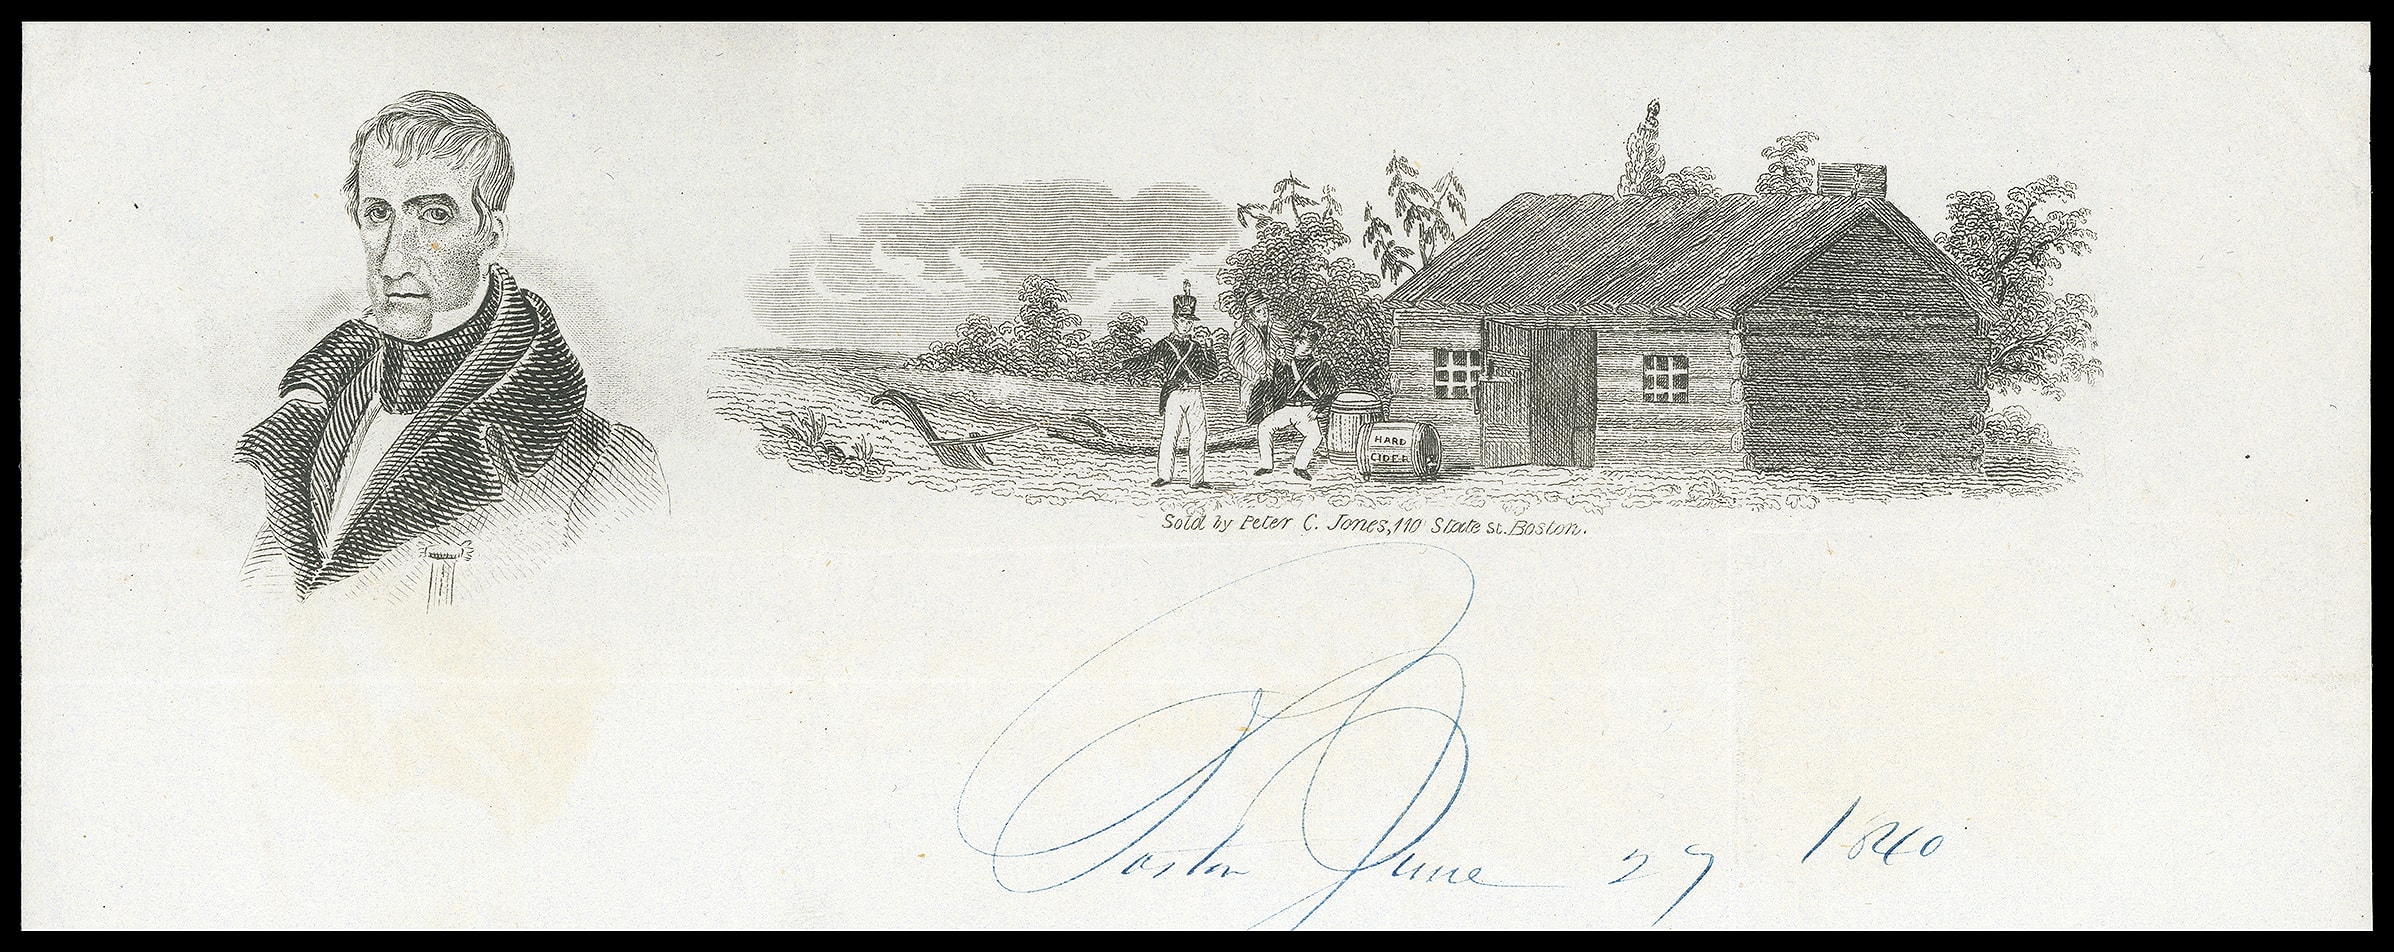 HARD
CIDER
Sold by Peter C. Jones, 110 State St. Boston.
Boston June 27 1840